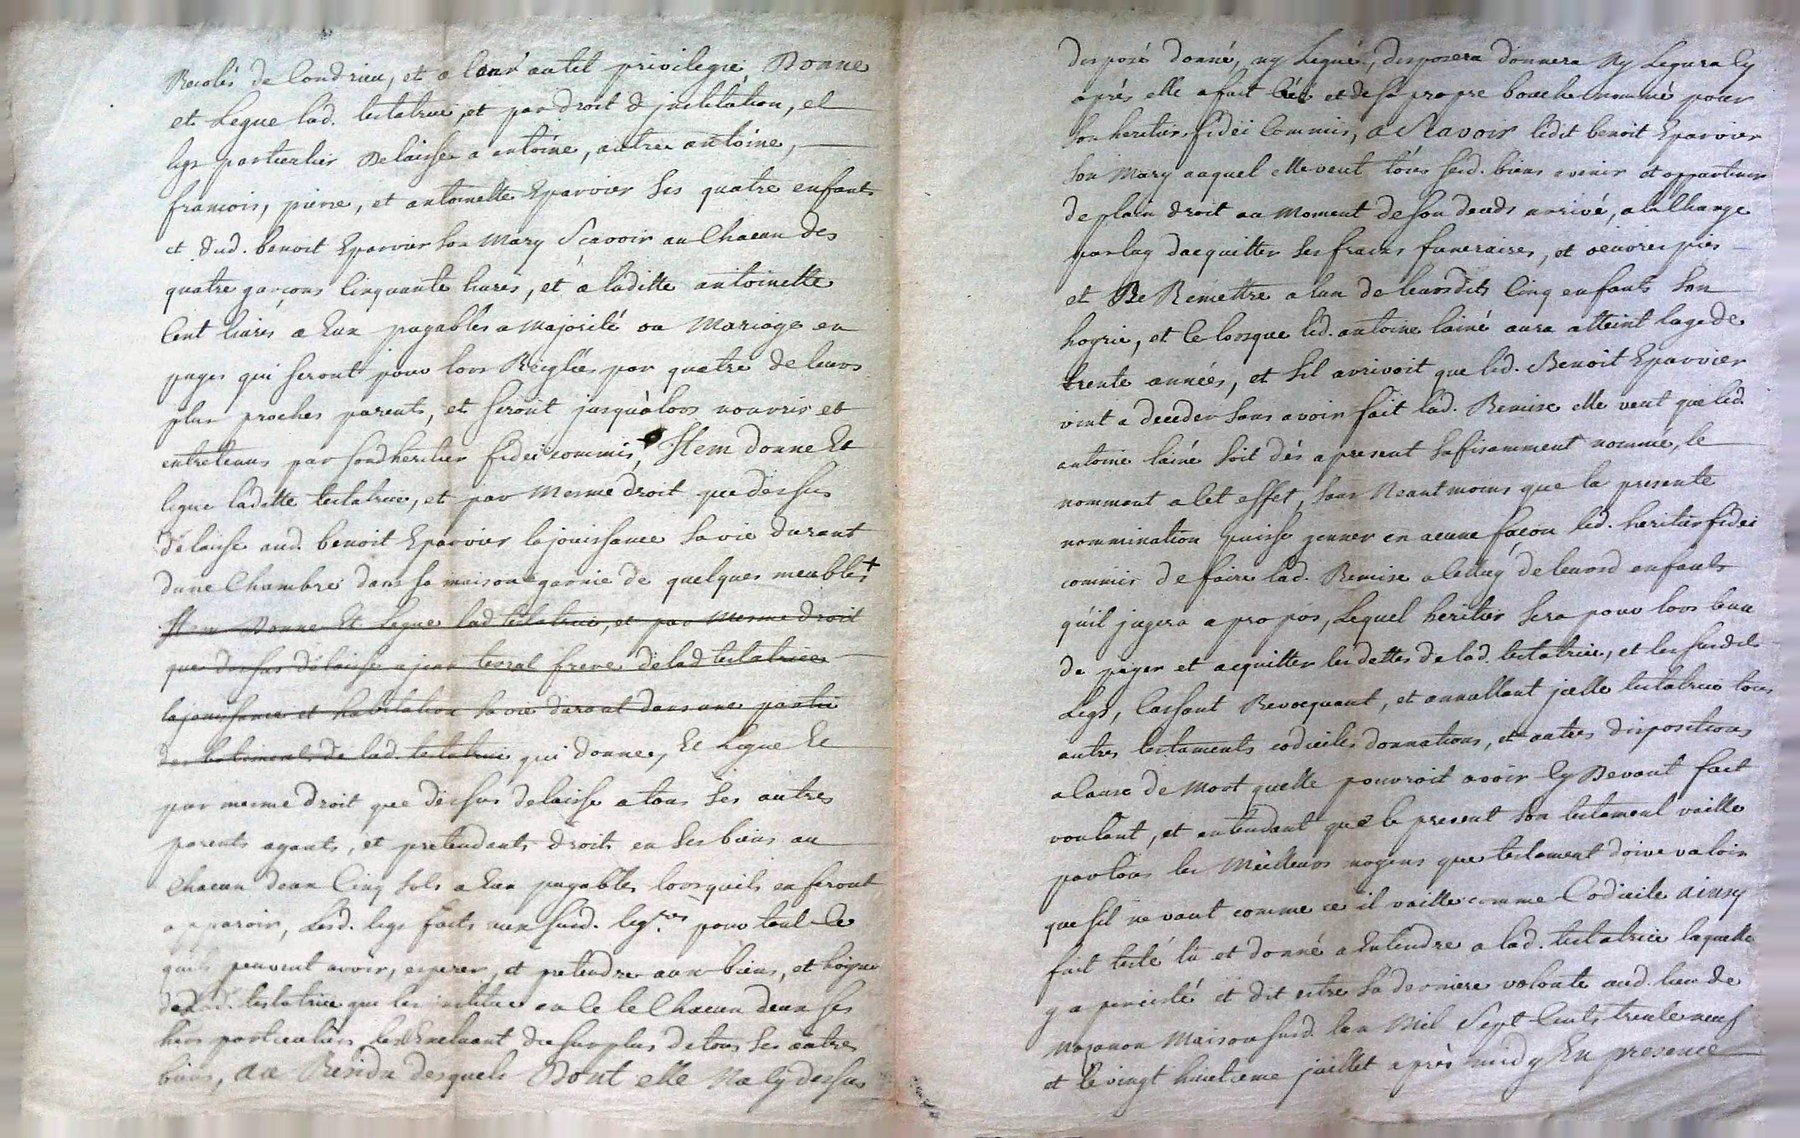 Recolés de Condrieu, et a leur autel privilegié, Donne
et Legue lad. testatrice, et par droit d'institution, et
legs particulier Delaisse a antoine, autre antoine,
francois, pierre, et antoinette Eparvier ses quatre enfants
et dud. benoit Eparvier son Mary Scavoir au Chacun des
quatre garçons Cinquante livres, et a laditte antoinette
Cent livres a Eux payables a majorité ou Mariage en
payes qui seront pour lors Reiglées par quatre de leurs
plus proches parents, et seront jusqu'alors nourris et
entretenus par sond heritier fidei commis, Item donne Et
legue laditte testatrice, et par Mesme droit que dessus
délaisse aud. benoit Eparvier la jouissance sa vie durant
dune Chambre dans sa maison garnie de quelques meubles +
Item Donne Et Legue lad testatrice, et par Mesme droit
que dessus délaisse a jean terral frere de lad testatrice
la jouissance et habitation sa vie durant dans une partie
des batiments de lad. testatrice qui donne, Et legue Et
par mesme droit que dessus delaisse a tous ses autres
parents ayants, et pretendants droits en ses biens au
Chacun deux Cinq sols a Eux payables lorsquils en feront
apparoir, Lesd. legs faits aux susd. leg.res pour tout ce
quils peuvent avoir, esperer, et pretendre aux biens, et hoyrie
de lad. testatrice que les institue en ce le Chacun deux ses
hers particuliers les Excluant du surplus de tous ses autres
biens, Au Residu desquels Dont elle Na Cy dessus
disposé donné, ny Legué, disposera donnera Ny Legura Cy
aprés elle a fait Crée et de sa propre bouche nommé pour
son heritier fidéi Commis, a Scavoir ledit benoit Eparvier
son Mary auquel elle veut tous sesd. biens avenir et appartenir
de plain droit au Moment de son deceds arrivé, a la Charge
par luy dacquitter ses fraits funeraires, et oeuvres pies
et De Remettre a lun de leursdits Cinq enfants son
hoyrie, et ce lorsque led. antoine lainé aura atteint lage de
trente années, et Sil arrivoit que led. Benoit Eparvier
vint a deceder sans avoir fait lad. Remise elle veut que led.
antoine lainé soit dés a present sufisamment nommé, le
nommant a Cet effet, sans Neantmoins que la presente
nommination puisse genner en aucune façon led. heritier fidei
commis de faire lad. Remise a Celluy de leursd enfants
qu'il jugera a propos, Lequel heritier sera pour lors tenu
de payer et acquitter les dettes de lad. testatrice, et les susdits
Legs, Cassant Revocquant, et annullant jcelle testatrice tous
autres testaments codiciles donnations, et autres dispositions
a Cause de Mort quelle pourroit avoir Cy Devant fait
voulant, et entendant que le present son testament vaille
par tous les Meilleurs moyens que testament doive valoir
que sil ne vaut comme ce il vaille comme Codicile ainsy
fait testé lu et donné a Entendre a lad. testatrice laquelle
y a percisté et dit estre sa derniere volonte aud. lieu de
Maison susd. lan Mil Sept Cents trente neuf
et le vingt huitieme juillet aprés midy En presence